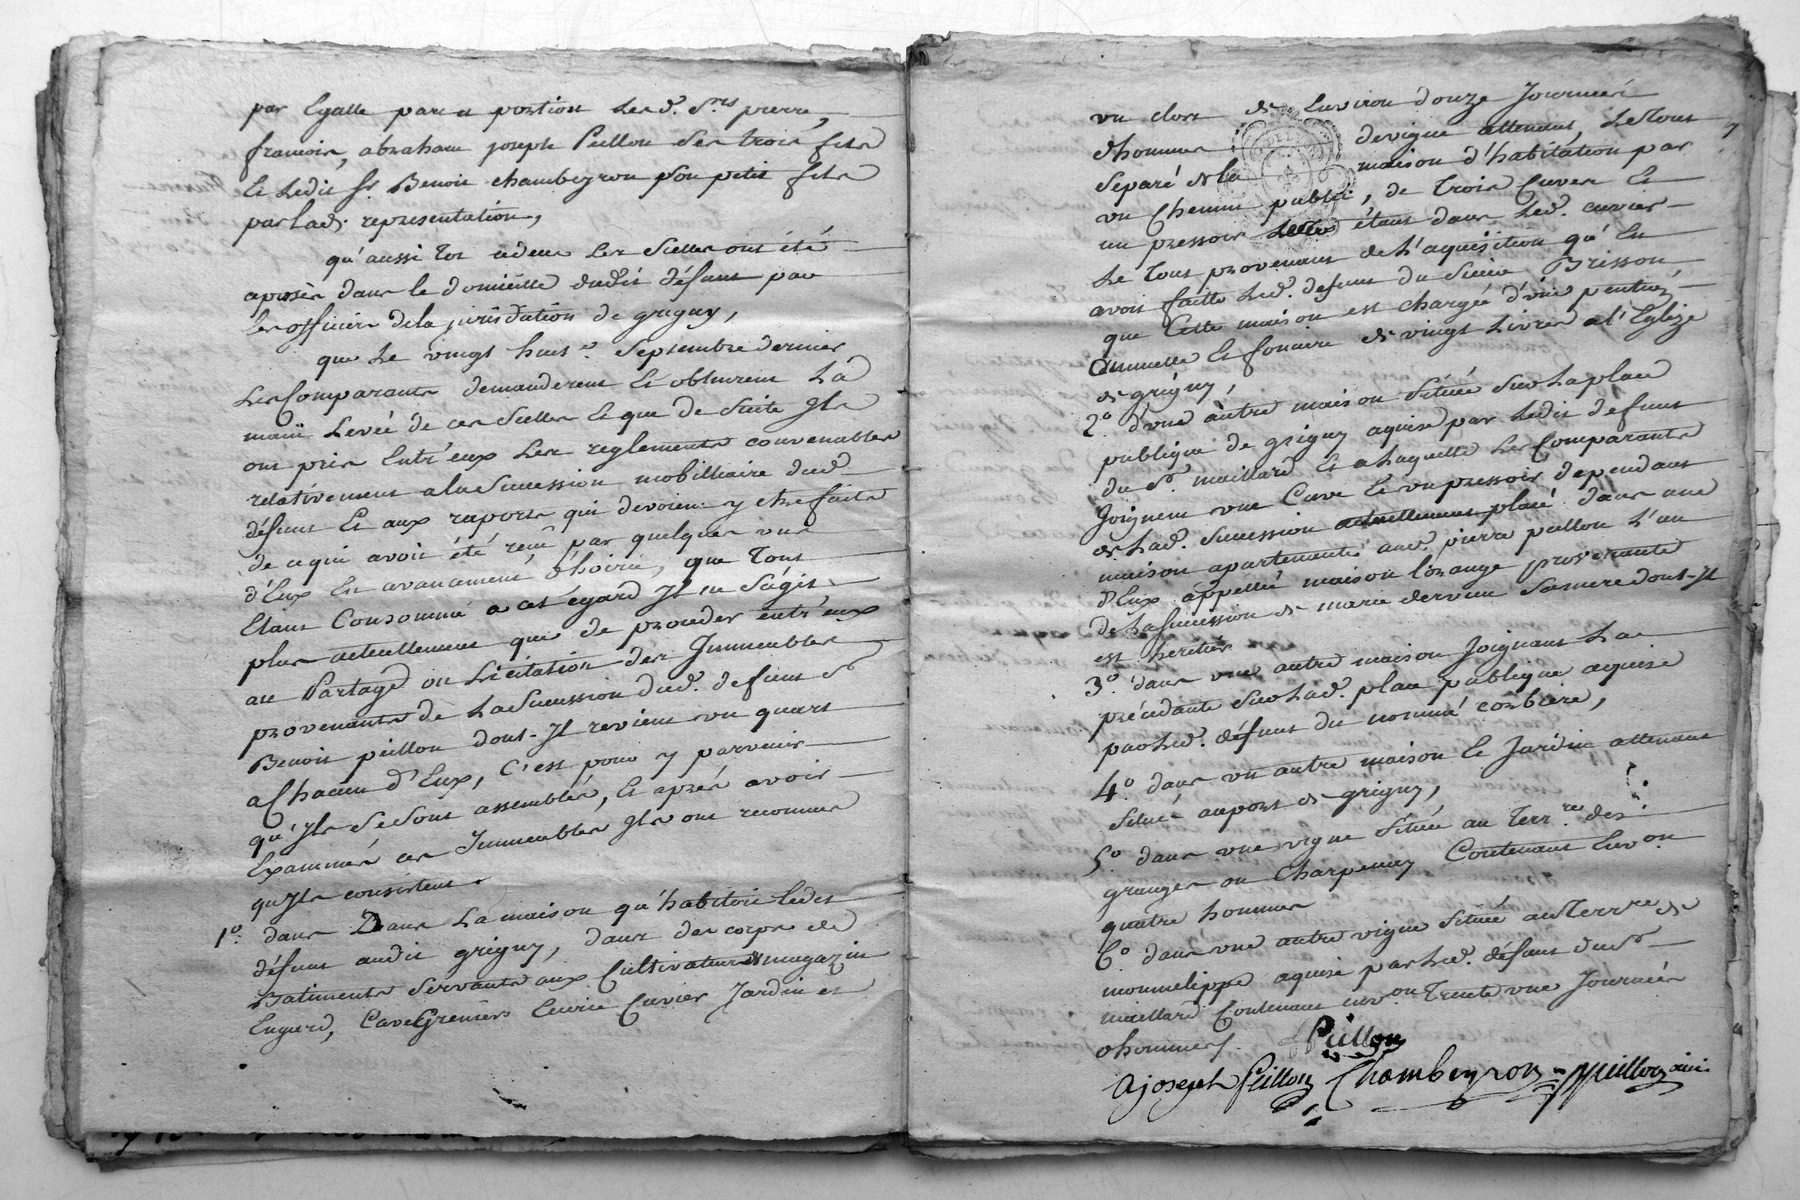 par Egalle part et portion Lesd. Srs pierre,
francois, abraham joseph Peillon Ses trois fils
Et Ledit Sr. Benoit chambeyron Son petit fils
par Lad. representation,
qu'aussi tot le Scellés ont été
aposés dans le domicille dudit défunt par
les officiers de la jurisdiction de grigny,
que Le vingt huit e. Septembre dernier
Les Comparants demanderent Et obtinrent La
main Levée de ces Scellés Et que de Suite Ils
ont pris Entr'eux Les reglements convenables
relativement a la Succession mobilliaire dud.
défunt Et aux raports qui devoient y etre faits
de ce qui avoit été reçu par quelques uns
d'Eux En avancement d'hoirie, que Tout
Etant Consommé a cet egard Il ne S'agit
plus actuellement que de proceder entr'eux
au Partage ou Licitation des Immeubles
provenants de La Succession dud. defunt Sr
Benoit peillon dont-Il revient un quart
a Chacun d'Eux, C'est pour y parvenir
qu'Ils Se Sont assemblés, Et aprés avoir
Examiné ces Immeubles Ils ont reconnu
qu'Ils consistent
1o. dans Dans La maison qu'habitoit Ledit
défunt audit grigny, dans des corps de
Batiments Servants aux Cultivateurs & magazin
Engard, Cave Greniers Ecurie Cuvier Jardin et
7
un clos de Environ douze Journées
d'hommes de vigne attenant, Le Tout
Separé de la maison d'habitation par
un Chemin public, de trois Cuves Et
un pressoir étant dans Led. cuvier
Le Tout provenant de L'aquisition qu'En
avoit faitte Led. defunt du Sieur Brisson
que Cette maison est chargée d'une pention
annuelle Et fonciere de vingt Livres a l'Eglize
de grigny,
2o. d'une autre maison Située Sur La place
publique de grigny aquise par Ledit defunt
du Sr. maillard Et a Laquelle Les Comparants
Joignent une Cuve Et un pressoir dependant
de Lad. Succession actuellement placé dans une
maison apartenante aud. pierre peillon L'un
d'Eux appellée maison l'orange provenante
de La Succession de marie dervieu Sa mere dont-Il
est heritier
3o. dans une autre maison Joignant La
précédante Sur Lad. place publique aquise
par Led. défunt du nommé corbiere,
4o. dans un autre maison Et Jardin attenant
Situé au port de grigny,
5o. dans une vigne Située au Terr.re des
granges ou Charpenay Contenant Env.on
quatre hommes
6o. dans une autre vigne Située au Terr.re de
monnelippe aquise par Led. défunt dud. Sr
maillard Contenant env.on Trente une Journées
d'hommes.
Peillon
ajoseph Peillon Chambeyron ppeillon ainé